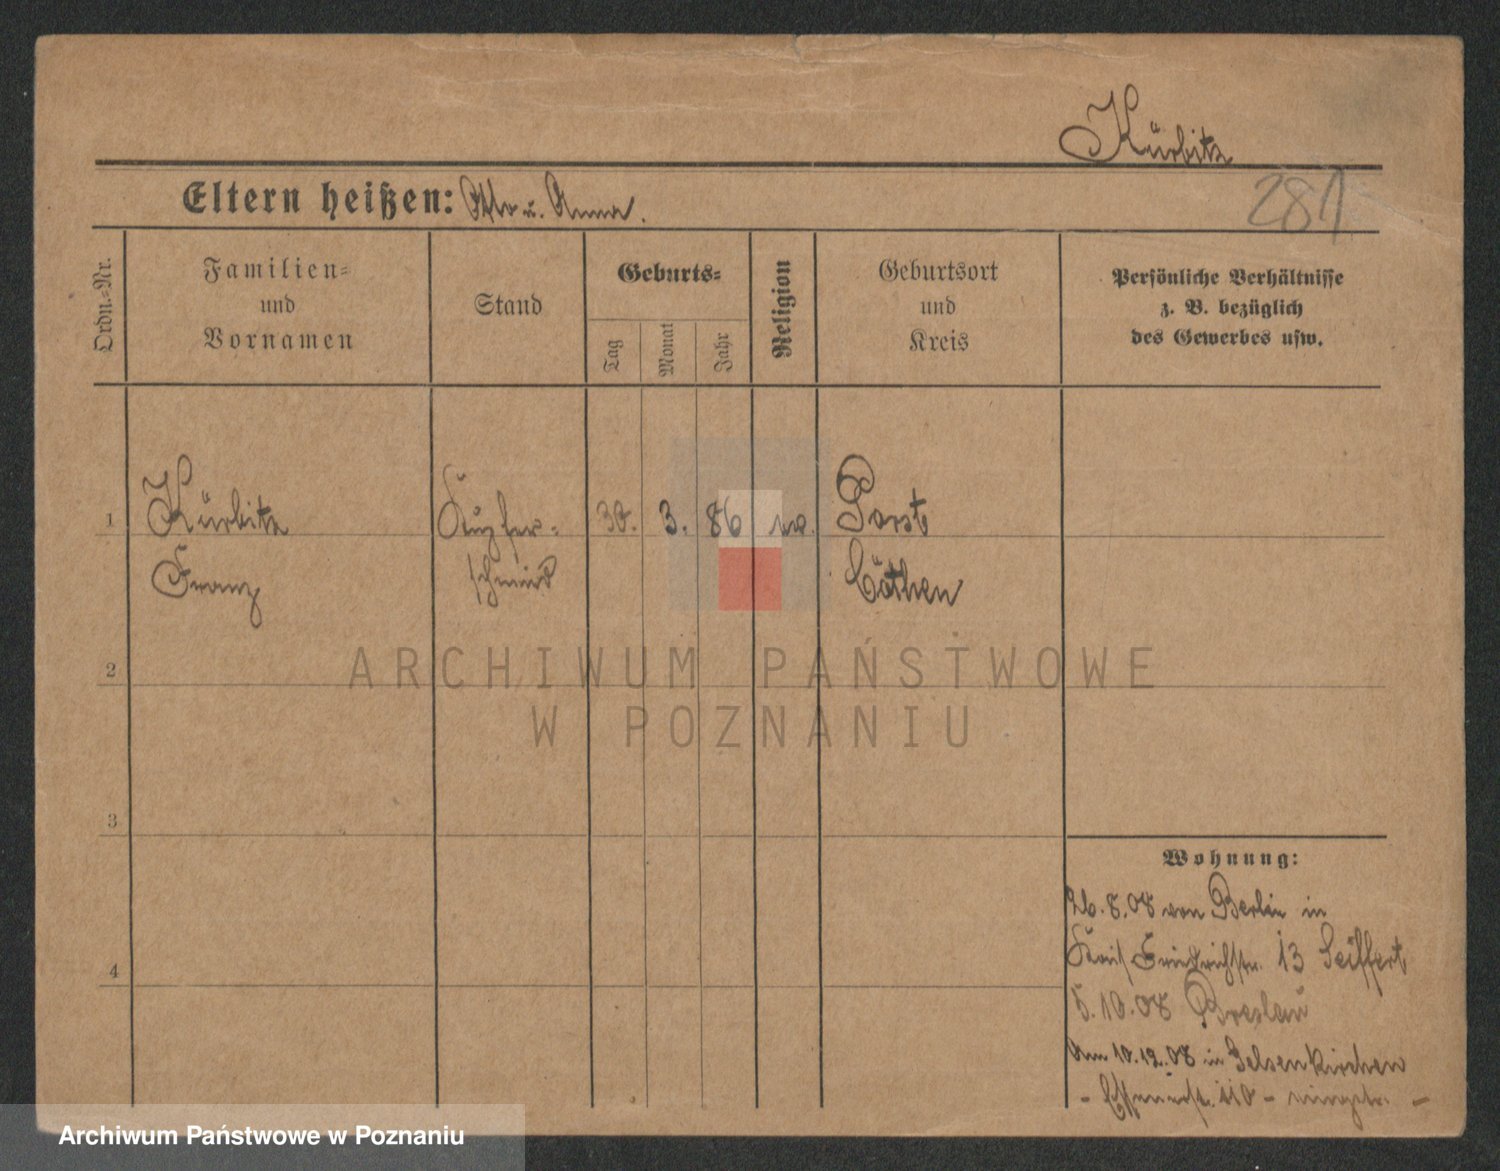 Kürbitz
281
Eltern heißen: u. Anna.
Ordn.-Nr.
Familien-
und
Vornamen
Stand
Geburts-
Tag
Monat
Jahr
Religion
Geburtsort
und
Kreis
Persönliche Verhältnisse
z. B. bezüglich
des Gewerbes usw.
1
Kürbitz
Franz
Kupfer-
schmied
30.
3.
86
ev.
Porst
Cöthen
2
3
4
Wohnung:
26.8.08 von Berlin in
Friedrichstr. 13 Seiffert
5.10.08 Breslau
Am 10.12.08 in Gelsenkirchen
- 110 - -
ARCHIWUM PAŃSTWOWE
W POZNANIU
Archiwum Państwowe w Poznaniu